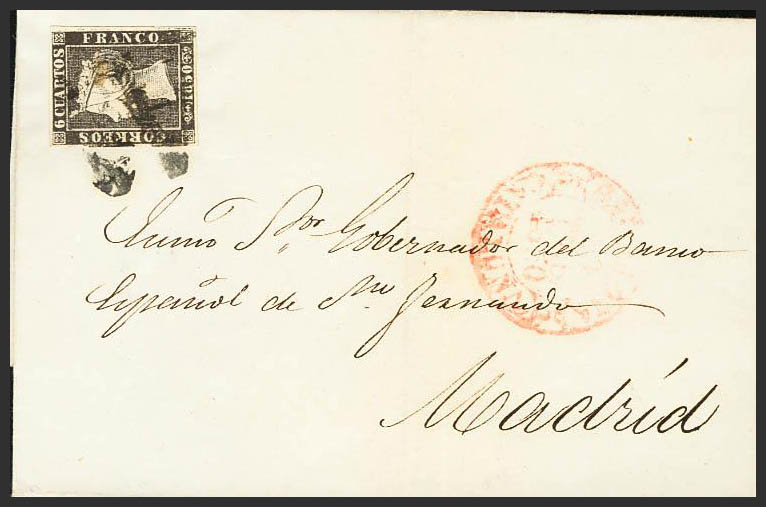 FRANCO
6 CUARTOS
1850
CORREOS
Sor Gobernador del Banco
Español de Sn Fernando
Madrid